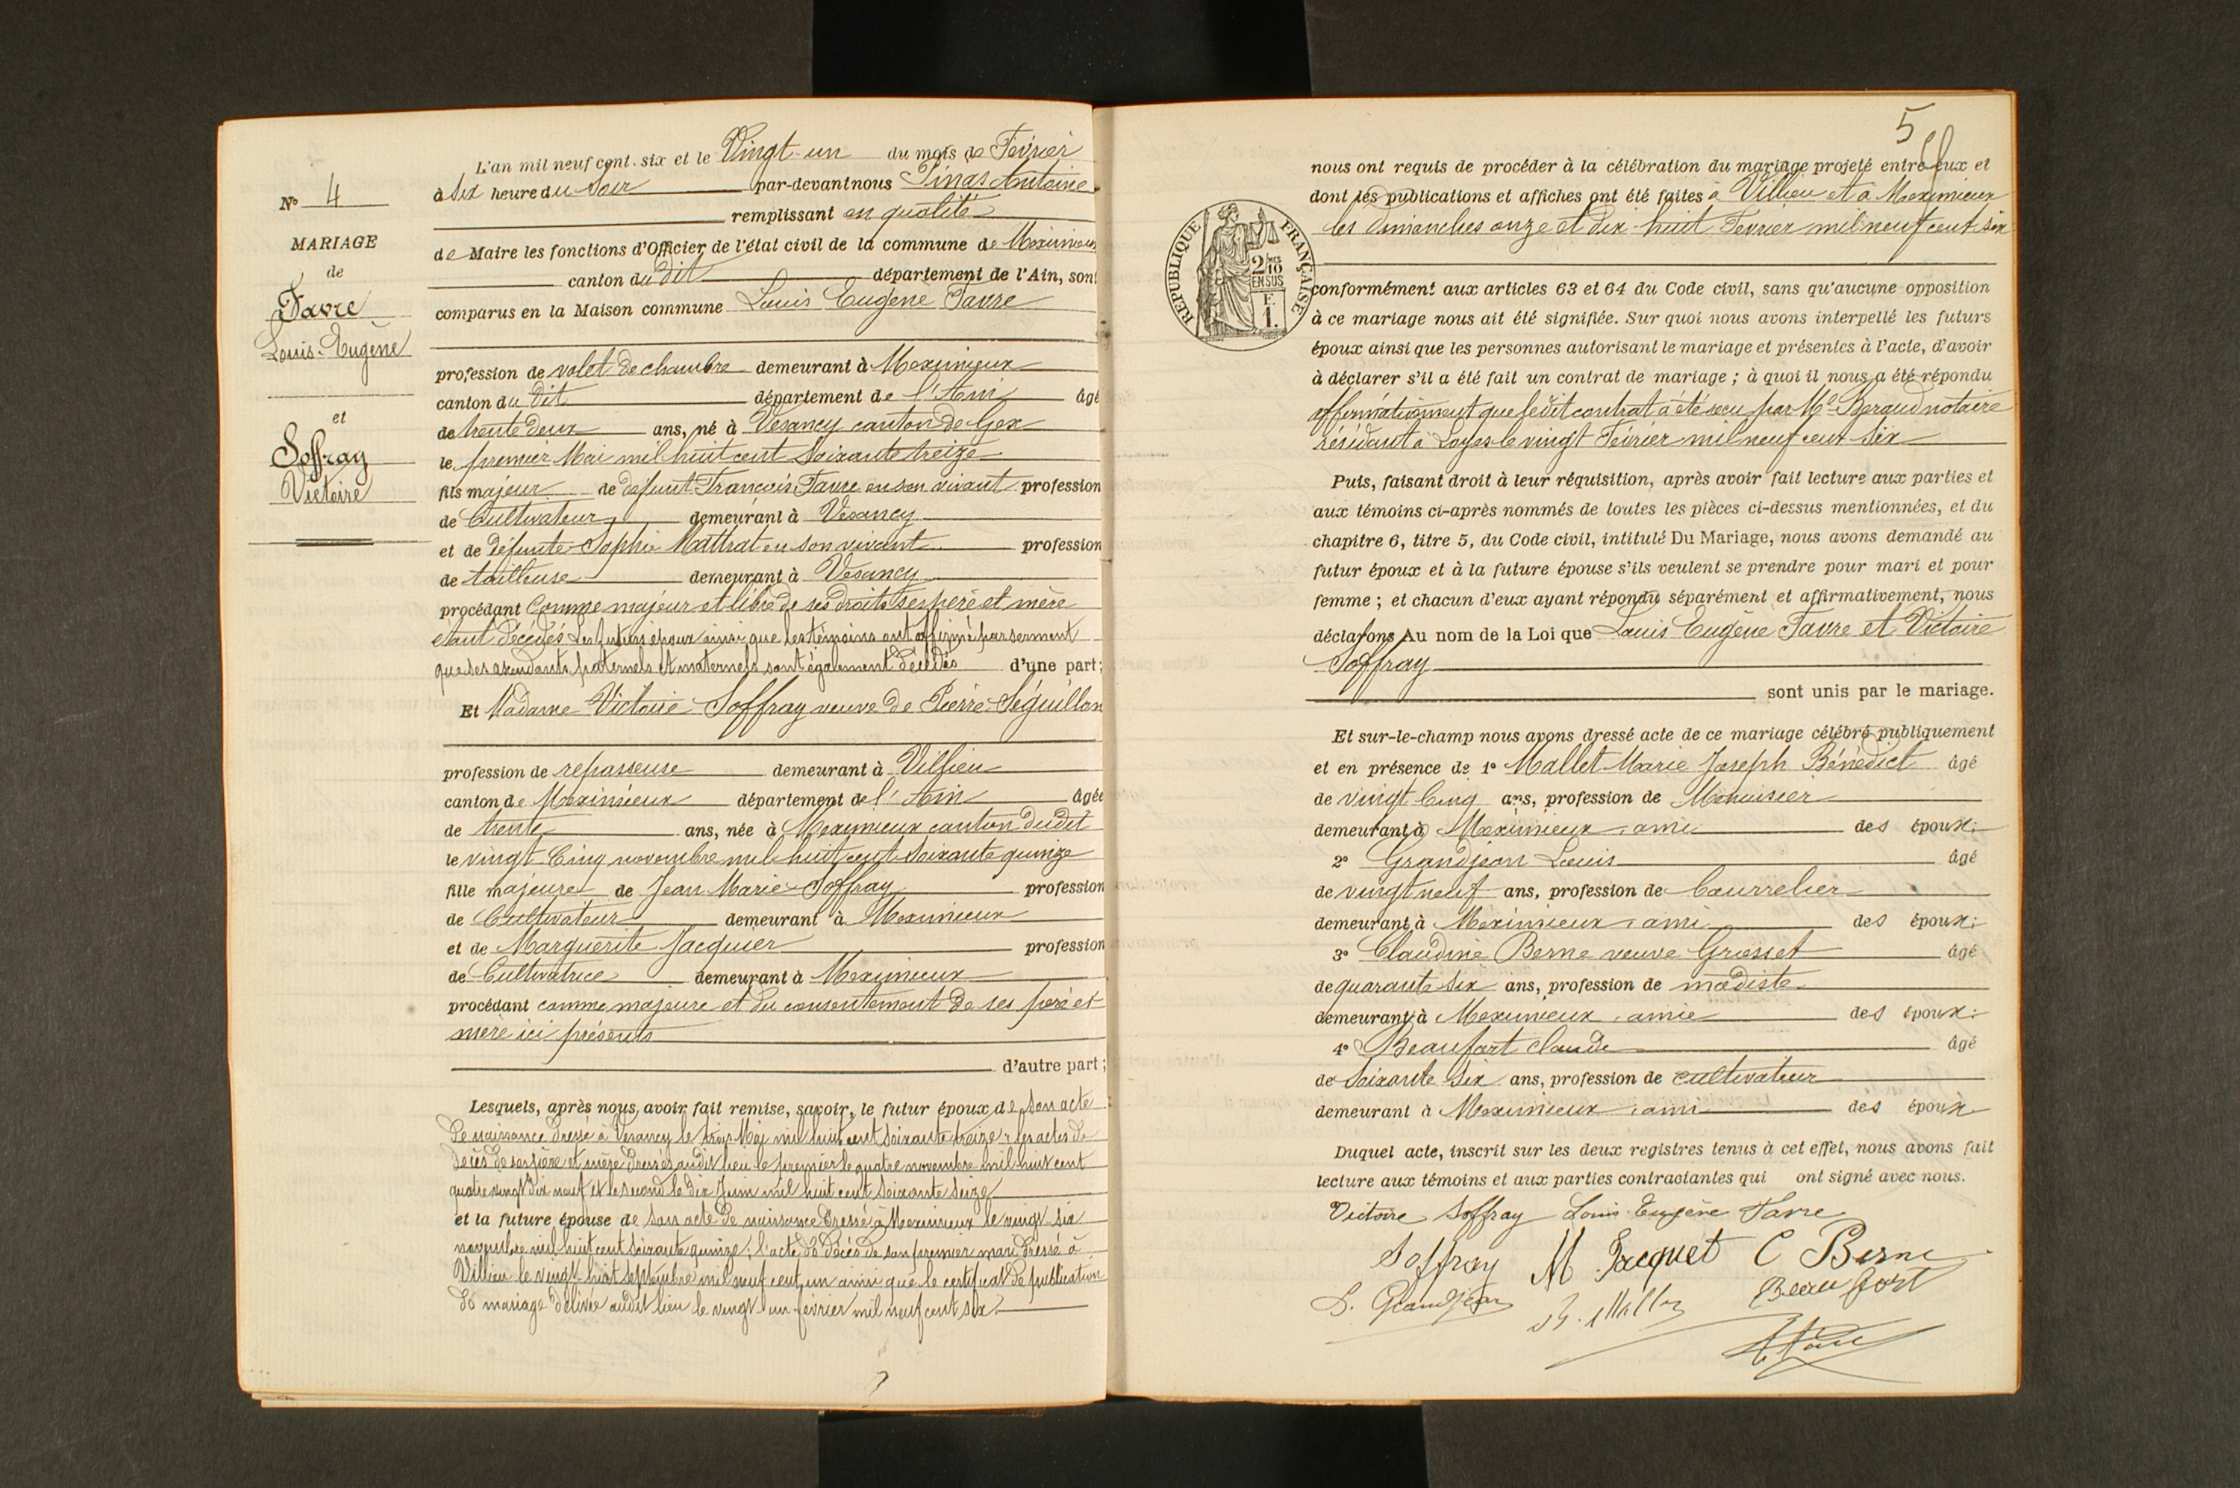 N° 4
MARIAGE
de
Favre
Louis-Eugène
et
Soffray
Victoire
L'an mil neuf cent-six et le Vingt-un du mois de Fevrier
à six heure du soir par-devant nous Pinas Antoine
remplissant en qualité
de Maire les fonctions d'Officier de l'état civil de la commune de Meximieux
canton du dit département de l'Ain, sont
comparus en la Maison commune Louis Eugène Favre
profession de valet de chambre demeurant à Meximieux
canton du dit département de l'Ain âgé
de trente deux ans, né à Vesancy canton de Gex
le premier Mai mil huit cent Soixante treize
fils majeur de défunt François Favre en son vivant profession
de Cultivateur demeurant à Vesancy
et de défunte Sophie Mattrat en son vivant profession
de tailleuse demeurant à Vesancy
procédant Comme majeur et libre de ses droits ses père et mère
étant décédés Les futurs époux ainsi que les témoins ont affirmé par serment
que ses ascendants paternels et maternels sont également décédés d'une part;
Et Madame Victoire Soffray veuve de Pierre Séguillon
profession de repasseuse demeurant à Villieu
canton de Meximieux département de l'Ain âgée
de trente ans, née à Meximieux canton dudit
le vingt Cinq novembre mil huit cent Soixante quinze
fille majeure de Jean Marie Soffray profession
de Cultivateur demeurant à Meximieux
et de Marguerite Jacquier profession
de Cultivatrice demeurant à Meximieux
procédant comme majeure et du consentement de ses père et
mère ici présents
d'autre part;
Lesquels, après nous avoir fait remise, savoir, le futur époux de son acte
de naissance dressé à Vesancy le trois Mai mil huit cent Soixante treize, les actes de
décès de ses père et mère dressés audit lieu le premier le quatre novembre mil huit cent
quatre vingt dix neuf et le second le dix Juin mil huit cent Soixante Seize
et la future épouse de son acte de naissance dressé à Meximieux le vingt six
novembre mil huit cent Soixante quinze, l'acte de décès de son premier mari dressé à
Villieu le vingt huit Septembre mil neuf cent un ainsi que le certificat de publication
de mariage délivré audit lieu le vingt un février mil neuf cent six.
5
nous ont requis de procéder à la célébration du mariage projeté entre eux et
dont les publications et affiches ont été faites à Villieu et à Meximieux
les dimanches onze et dix huit Fevrier mil neuf cent six
RÉPUBLIQUE FRANÇAISE
2/10
EN SUS
F.
1.
conformément aux articles 63 et 64 du Code civil, sans qu'aucune opposition
à ce mariage nous ait été signifiée. Sur quoi nous avons interpellé les futurs
époux ainsi que les personnes autorisant le mariage et présentes à l'acte, d'avoir
à déclarer s'il a été fait un contrat de mariage; à quoi il nous a été répondu
affirmativement que ledit contrat a été reçu par Me Beraud notaire
résidant à Loyes le vingt Février mil neuf cent six
Puis, faisant droit à leur réquisition, après avoir fait lecture aux parties et
aux témoins ci-après nommés de toutes les pièces ci-dessus mentionnées, et du
chapitre 6, titre 5, du Code civil, intitulé Du Mariage, nous avons demandé au
futur époux et à la future épouse s'ils veulent se prendre pour mari et pour
femme; et chacun d'eux ayant répondu séparément et affirmativement, nous
déclarons Au nom de la Loi que Louis Eugène Favre et Victoire
Soffray
sont unis par le mariage.
Et sur-le-champ nous avons dressé acte de ce mariage célébré publiquement
et en présence de 1° Mallet Marie Joseph Bénédict âgé
de vingt Cinq ans, profession de Menuisier
demeurant à Meximieux, ami des époux;
2° Grandjean Louis âgé
de vingt neuf ans, profession de bourrelier
demeurant à Meximieux, ami des époux;
3° Claudine Berne veuve Grosset âgé
de quarante six ans, profession de modiste
demeurant à Meximieux, amie des époux;
4° Beaufort Claude âgé
de Soixante Six ans, profession de cultivateur
demeurant à Meximieux, ami des époux
Duquel acte, inscrit sur les deux registres tenus à cet effet, nous avons fait
lecture aux témoins et aux parties contractantes qui ont signé avec nous.
Victoire Soffray Louis Eugène Favre
Soffray M Jacquet C Berne
L. Grandjean Beaufort